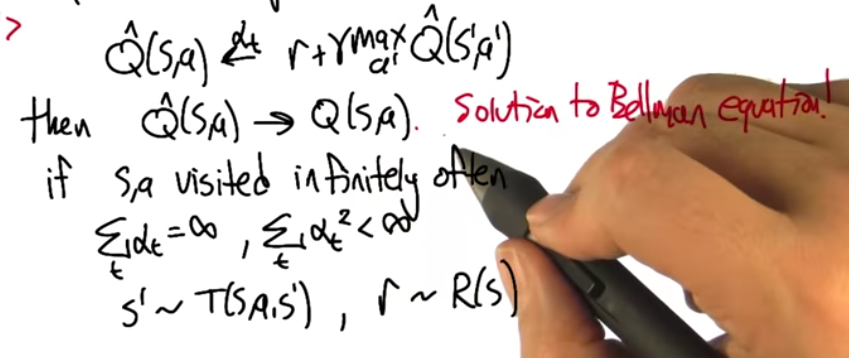 >
Q̂(s,a) ←^αt r+γ max_a' Q̂(s',a')
then Q̂(s,a) → Q(s,a). Solution to Bellman equation!
if s,a visited infinitely often
Σ_t αt = ∞ , Σ_t αt² < ∞
s' ~ T(s,a,s') , r ~ R(s)